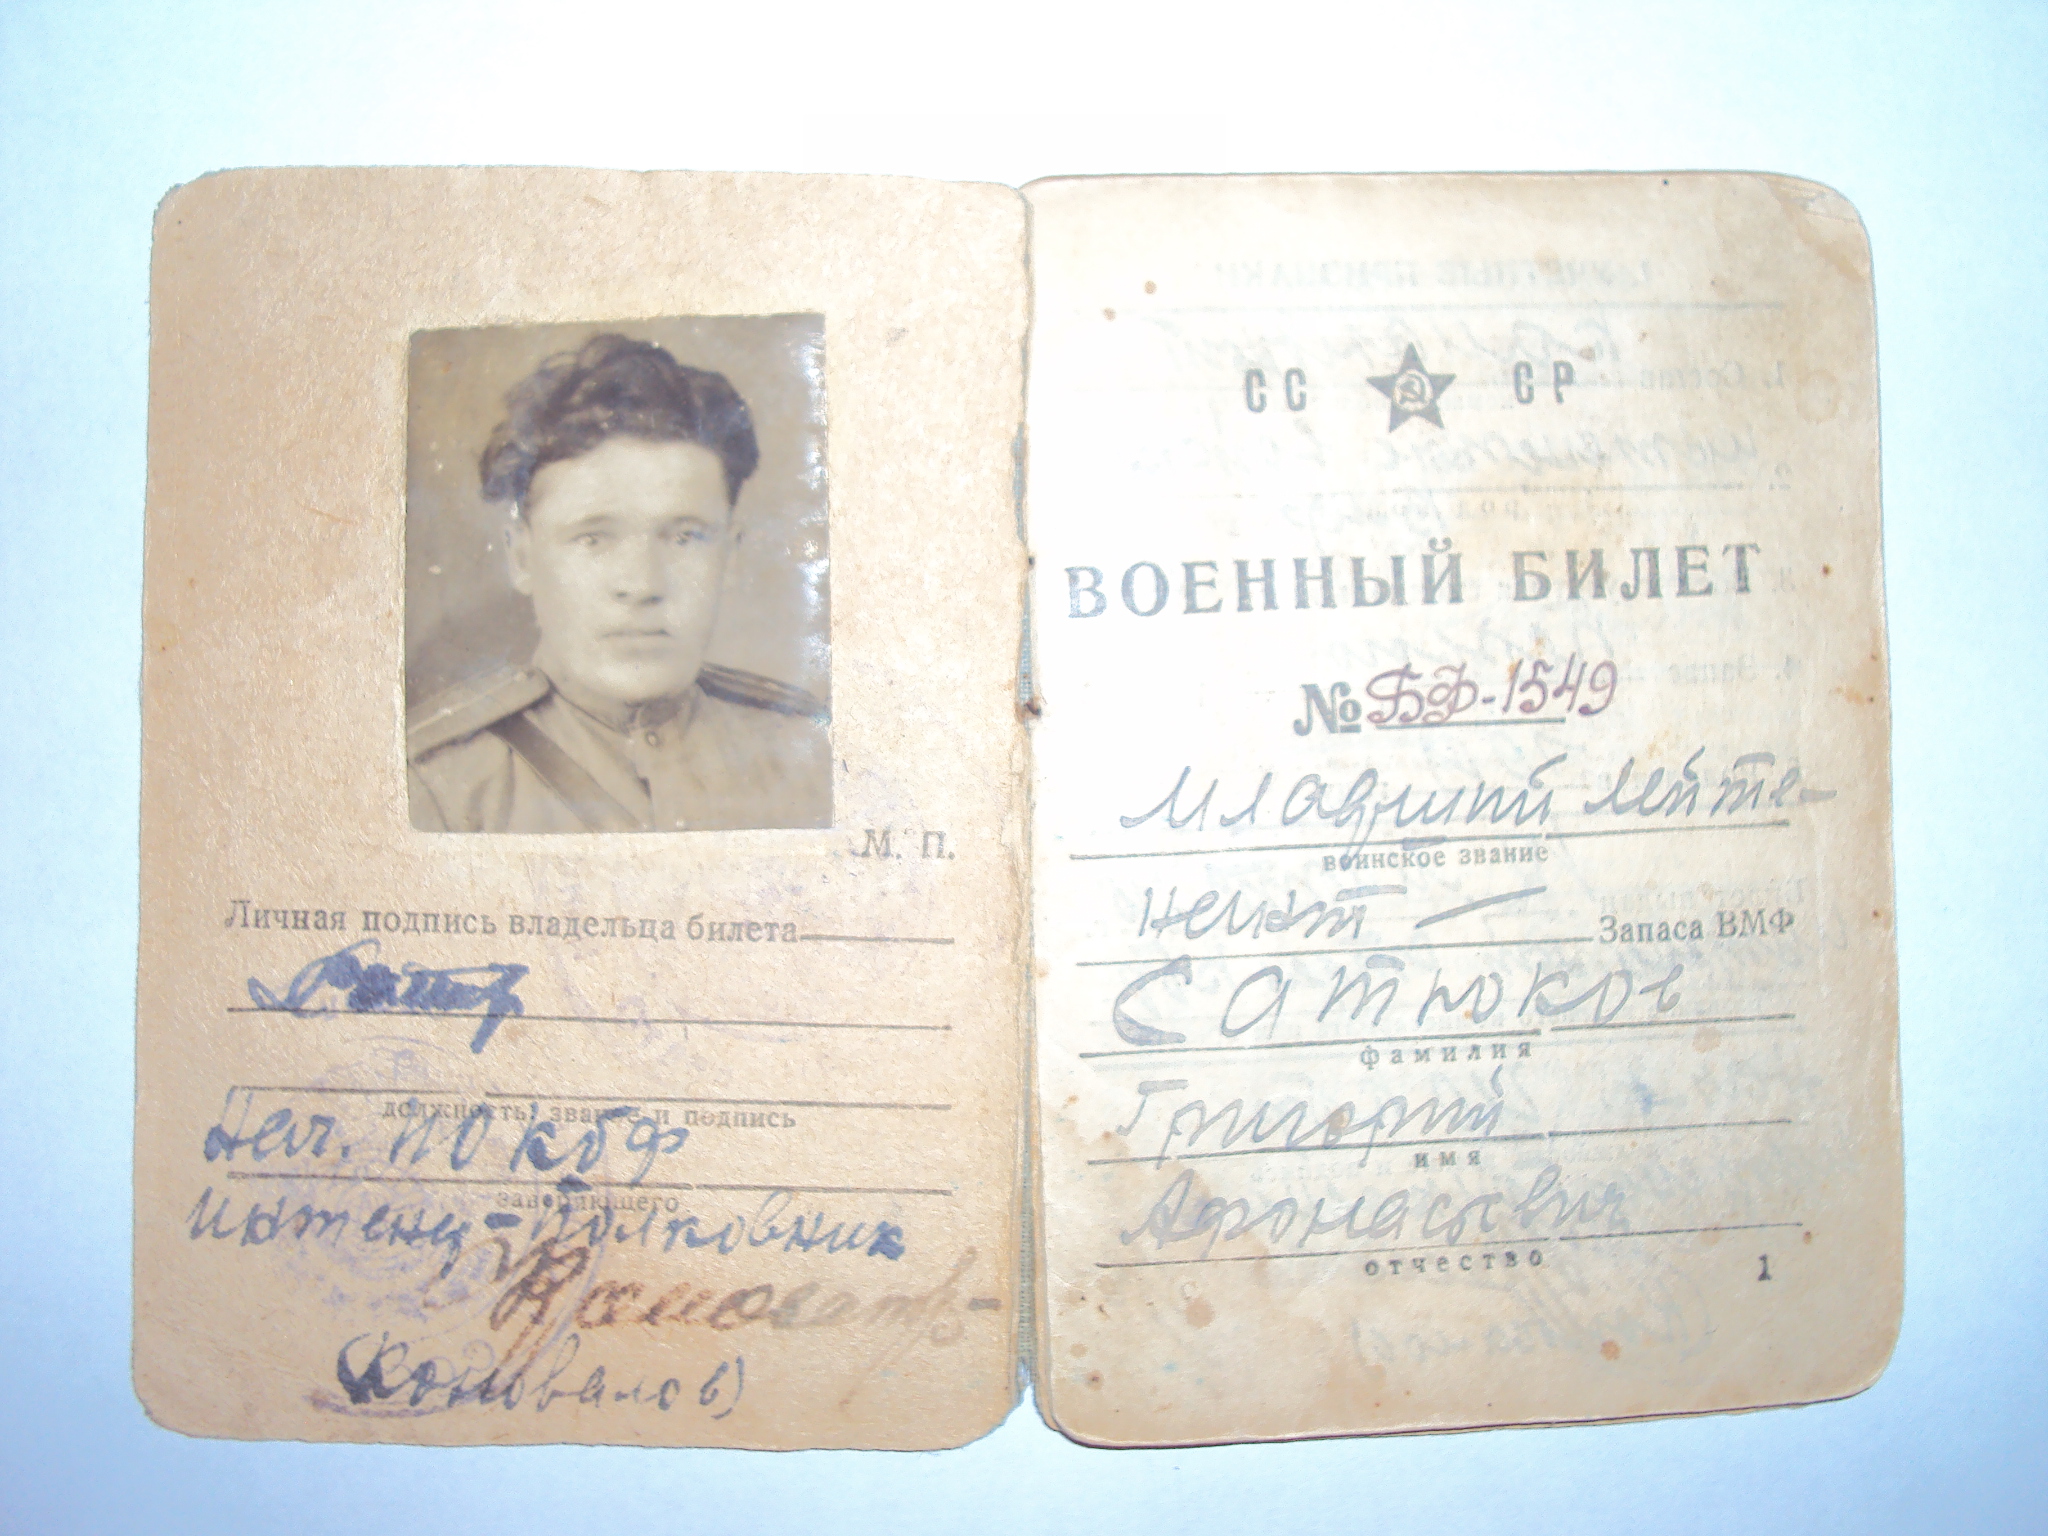 М. П.
Личная подпись владельца билета
должность, звание и подпись
Нач. ПО КБФ
заверяющего
Интенд-полковник
Коновалов)
СС СР
ВОЕННЫЙ БИЛЕТ
№ БФ-1549
Младший лейте-
воинское звание
нант — Запаса ВМФ
Сатюков
фамилия
Григорий
имя
Афонасьевич
отчество
1